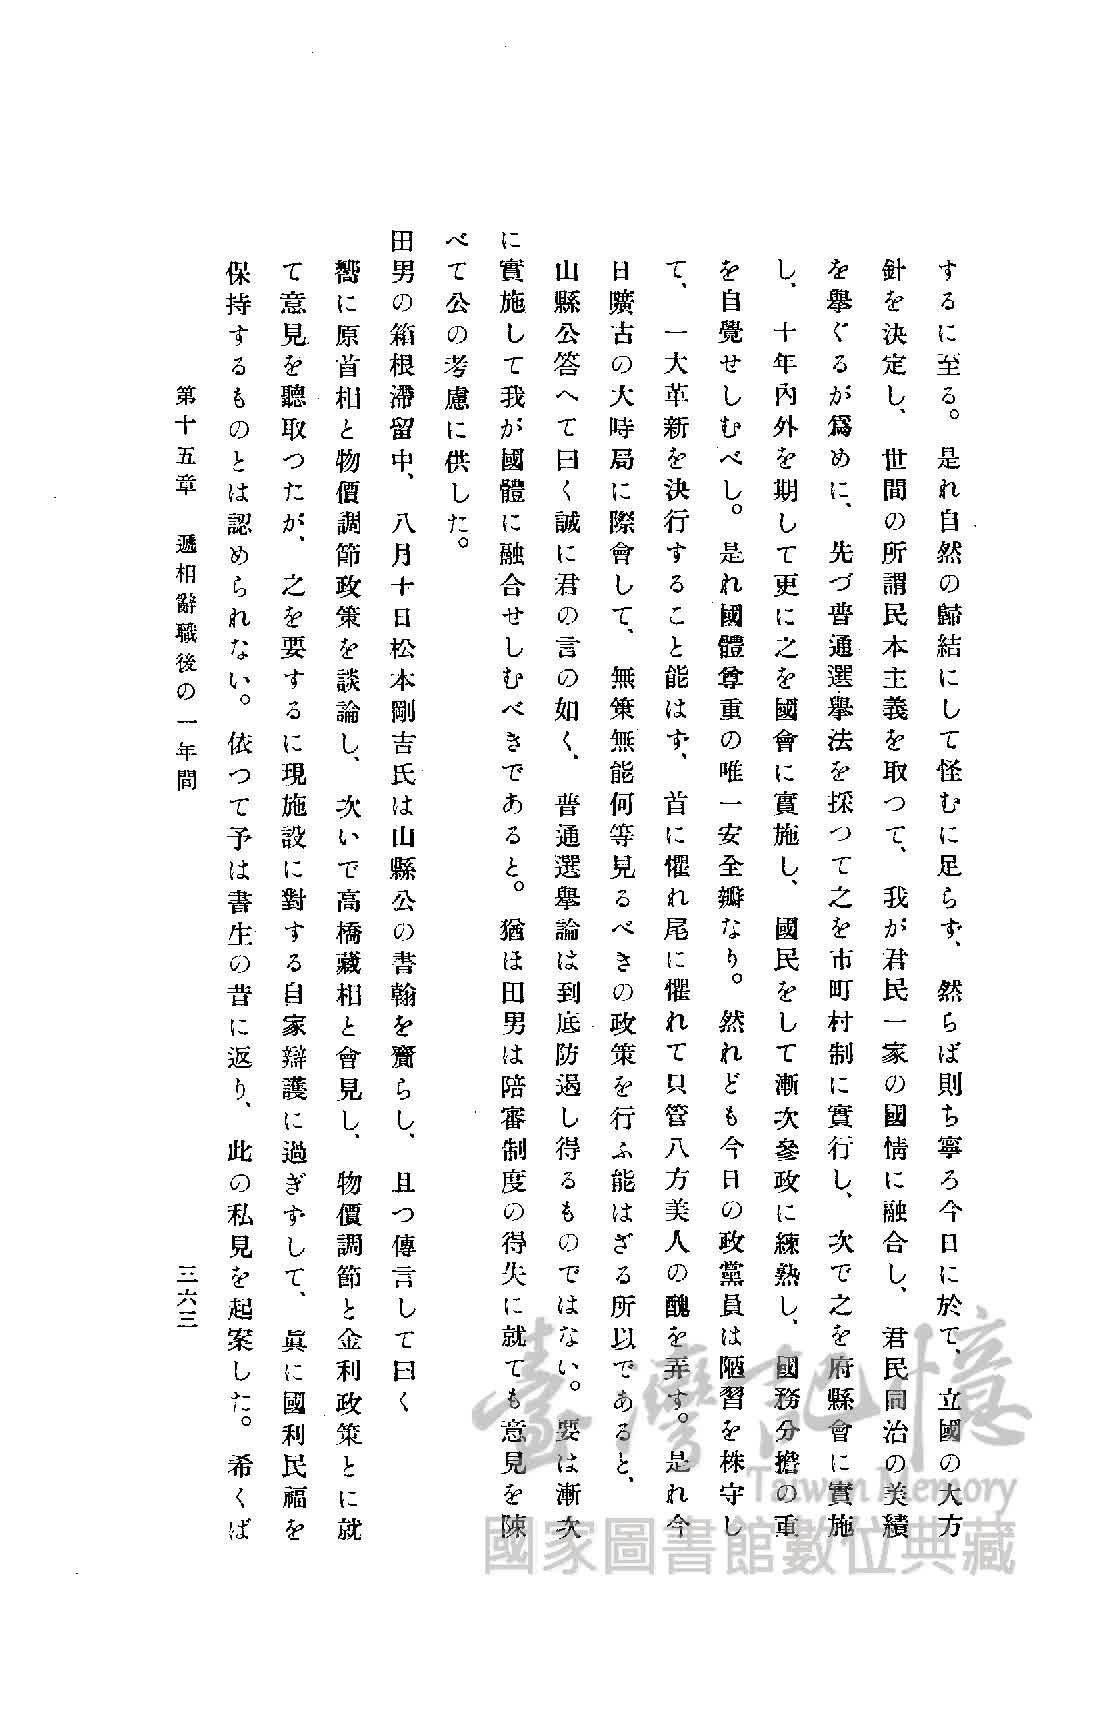 するに至る。是れ自然の歸結にして怪むに足らず、然らば則ち寧ろ今日に於て、立國の大方
針を決定し、世間の所謂民本主義を取つて、我が君民一家の國情に融合し、君民同治の美績
を擧ぐるが爲めに、先づ普通選擧法を採つて之を市町村制に實行し、次で之を府縣會に實施
し、十年內外を期して更に之を國會に實施し、國民をして漸次參政に練熟し、國務分擔の重
を自覺せしむべし。是れ國體尊重の唯一安全瓣なり。然れども今日の政黨員は陋習を株守し
て、一大革新を決行すること能はず、首に懼れ尾に懼れて只管八方美人の醜を弄す。是れ今
日曠古の大時局に際會して、無策無能何等見るべきの政策を行ふ能はざる所以であると、
山縣公答へて曰く誠に君の言の如く、普通選擧論は到底防遏し得るものではない。要は漸次
に實施して我が國體に融合せしむべきであると。猶ほ田男は陪審制度の得失に就ても意見を陳
べて公の考慮に供した。
田男の箱根滯留中、八月十日松本剛吉氏は山縣公の書翰を齎らし、且つ傳言して曰く
嚮に原首相と物價調節政策を談論し、次いで高橋藏相と會見し、物價調節と金利政策とに就
て意見を聽取つたが、之を要するに現施設に對する自家辯護に過ぎずして、眞に國利民福を
保持するものとは認められない。依つて予は書生の昔に返り、此の私見を起案した。希くば
第十五章 遞相辭職後の一年間
三六三
臺灣記憶
Taiwan Memory
國家圖書館數位典藏